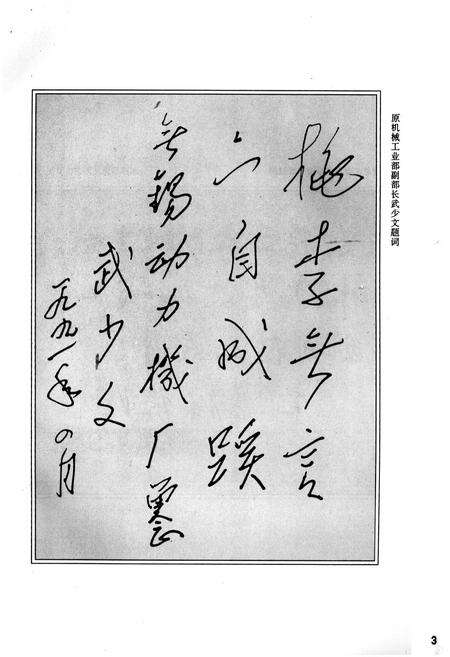 原机械工业部副部长武少文题词
桃李無言
下自成蹊
無錫动力機厂
武少文
一九九一年四月
3